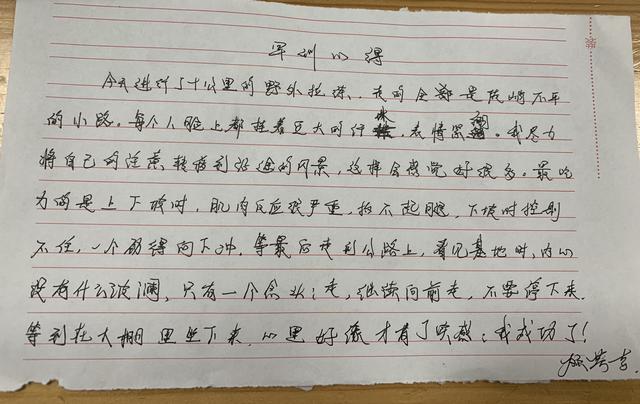 军训心得
今天进行了十公里的野外拉练，走的全都是陡峭不平
的小路。每个人脸上都挂着豆大的汗珠，表情紧绷。我尽力
将自己的注意转移到沿途的风景，这样会感觉好很多。最吃
力的是上下坡时，肌肉反应很严重，抬不起腿，下坡时控制
不住，一个劲得向下冲。等最后走到公路上，看见基地时，内心
没有什么波澜，只有一个念头：走，继续向前走，不要停下来。
等到在大棚里坐下来，心里好像才有了映感：我成功了！